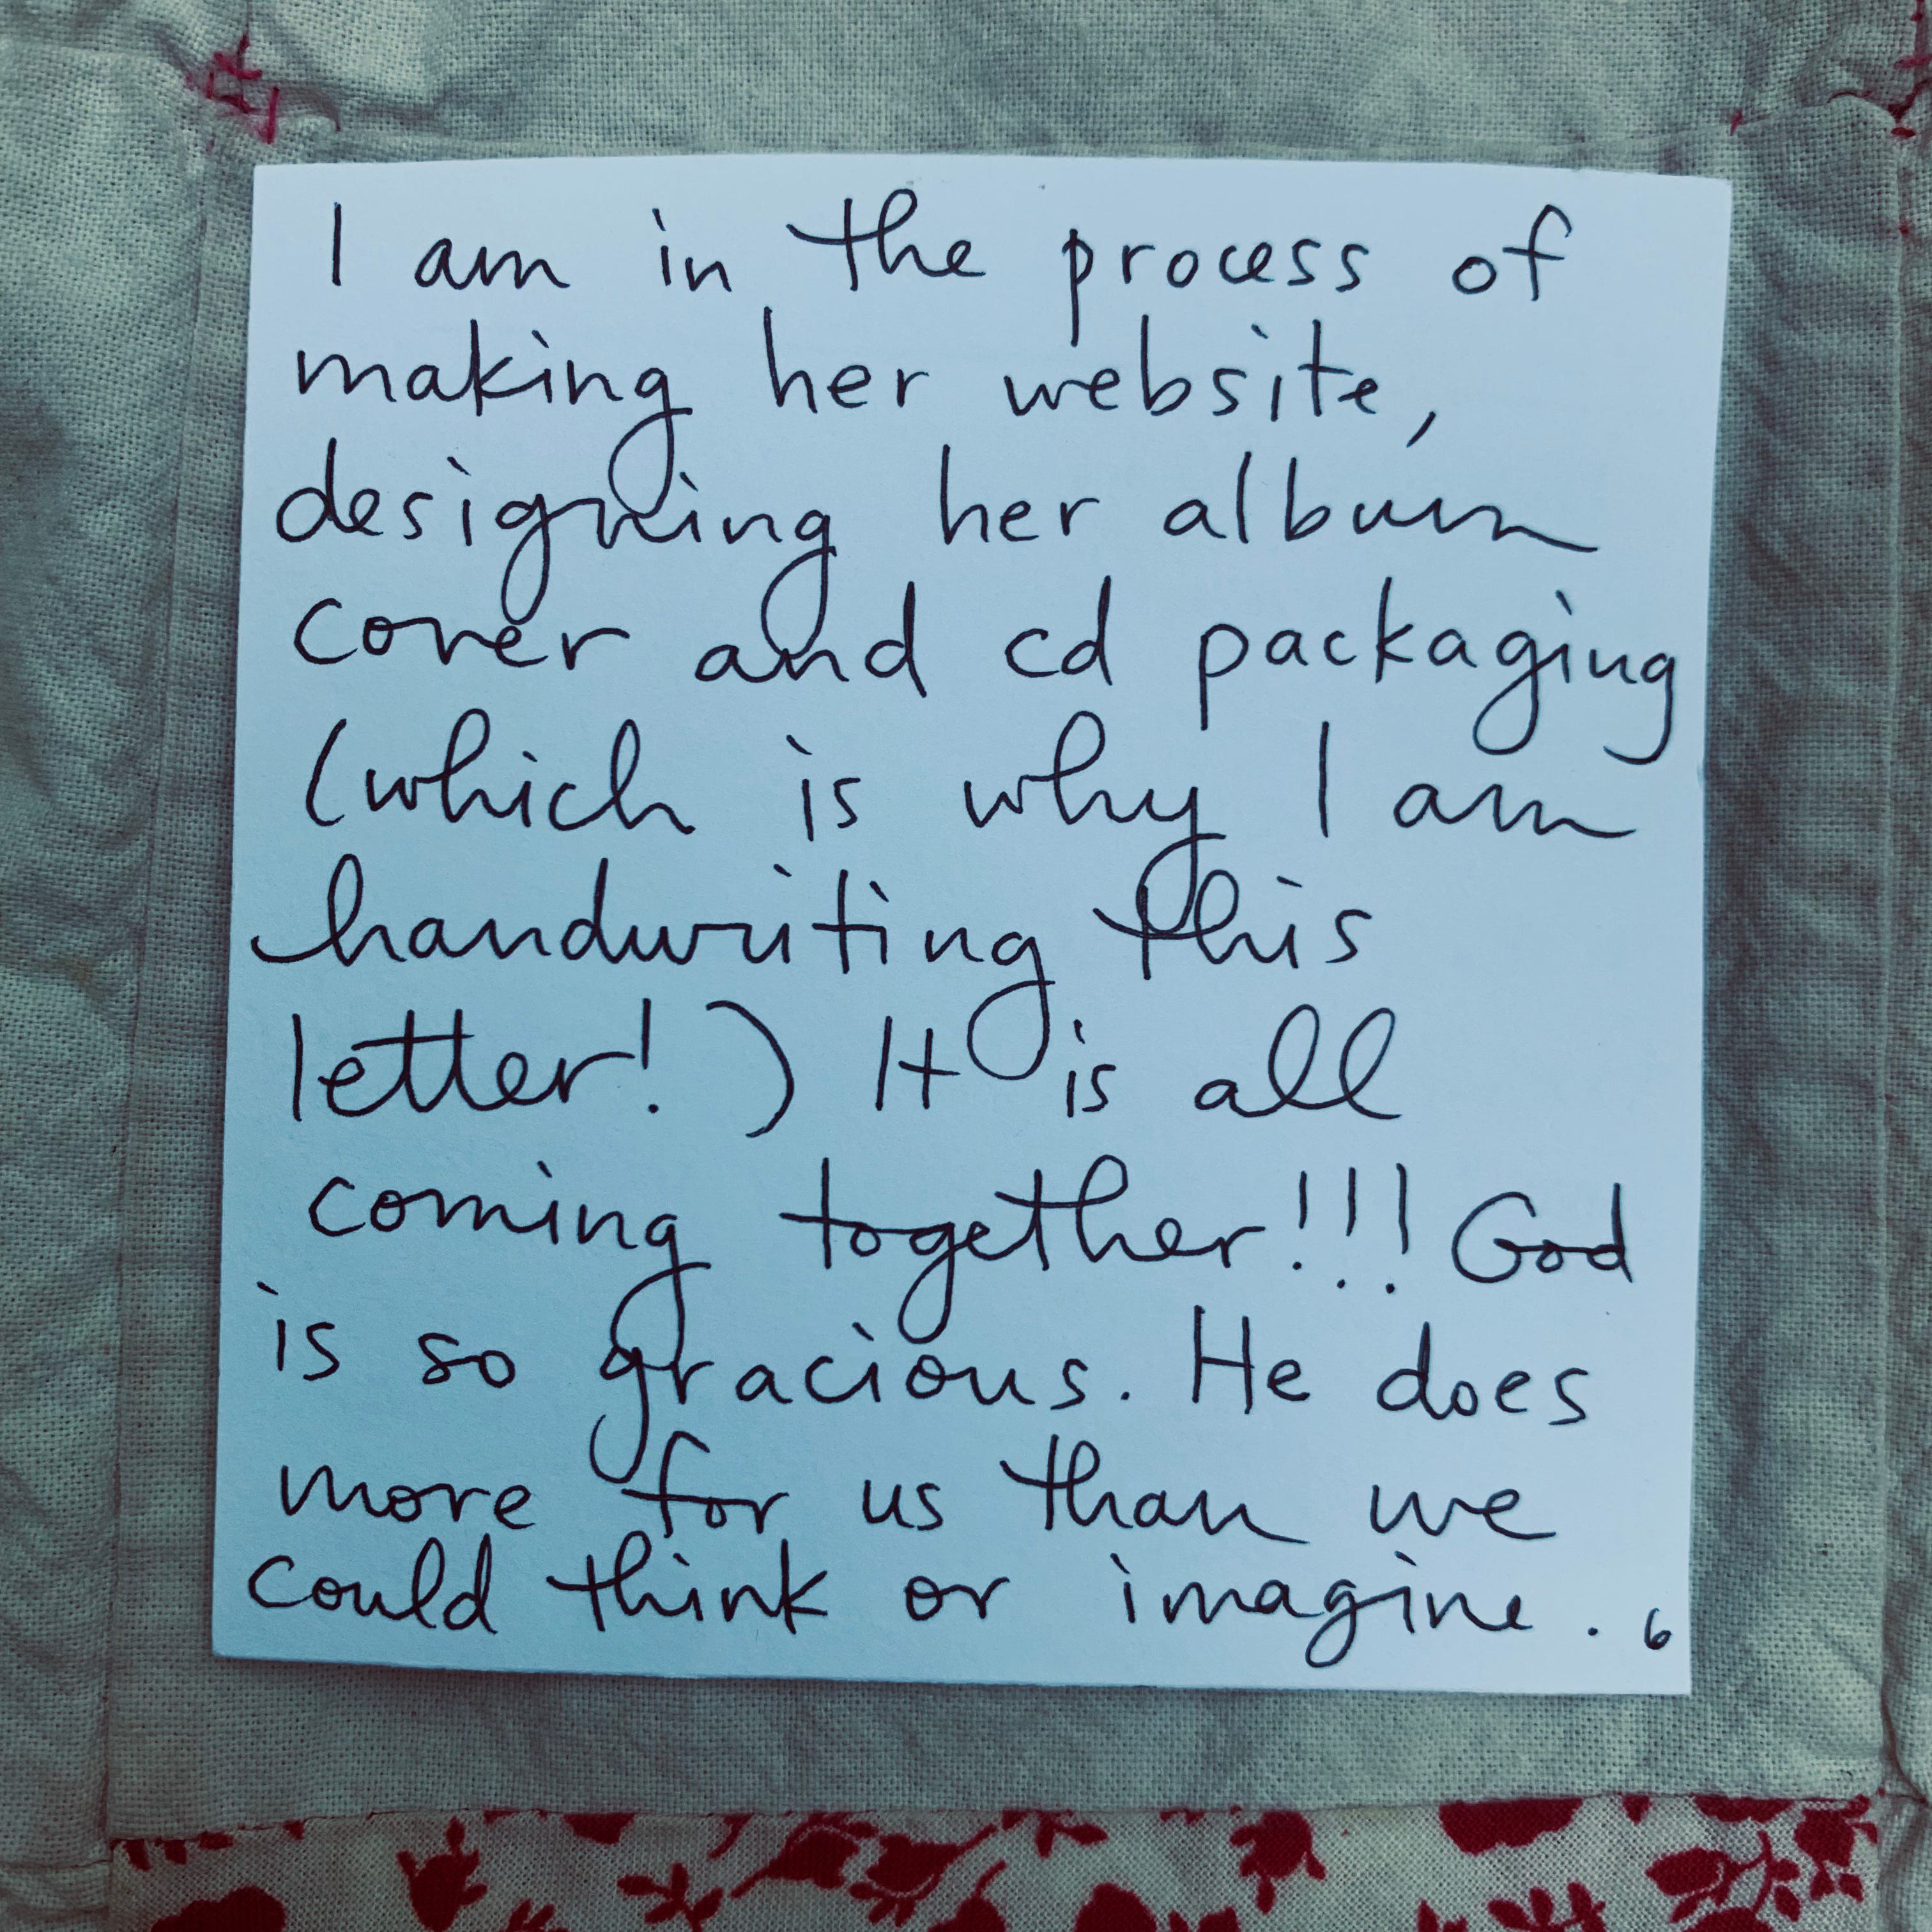 I am in the process of
making her website,
designing her album
cover and cd packaging
(which is why I am
handwriting this
letter!) It is all
coming together!!! God
is so gracious. He does
more for us than we
could think or imagine. 6